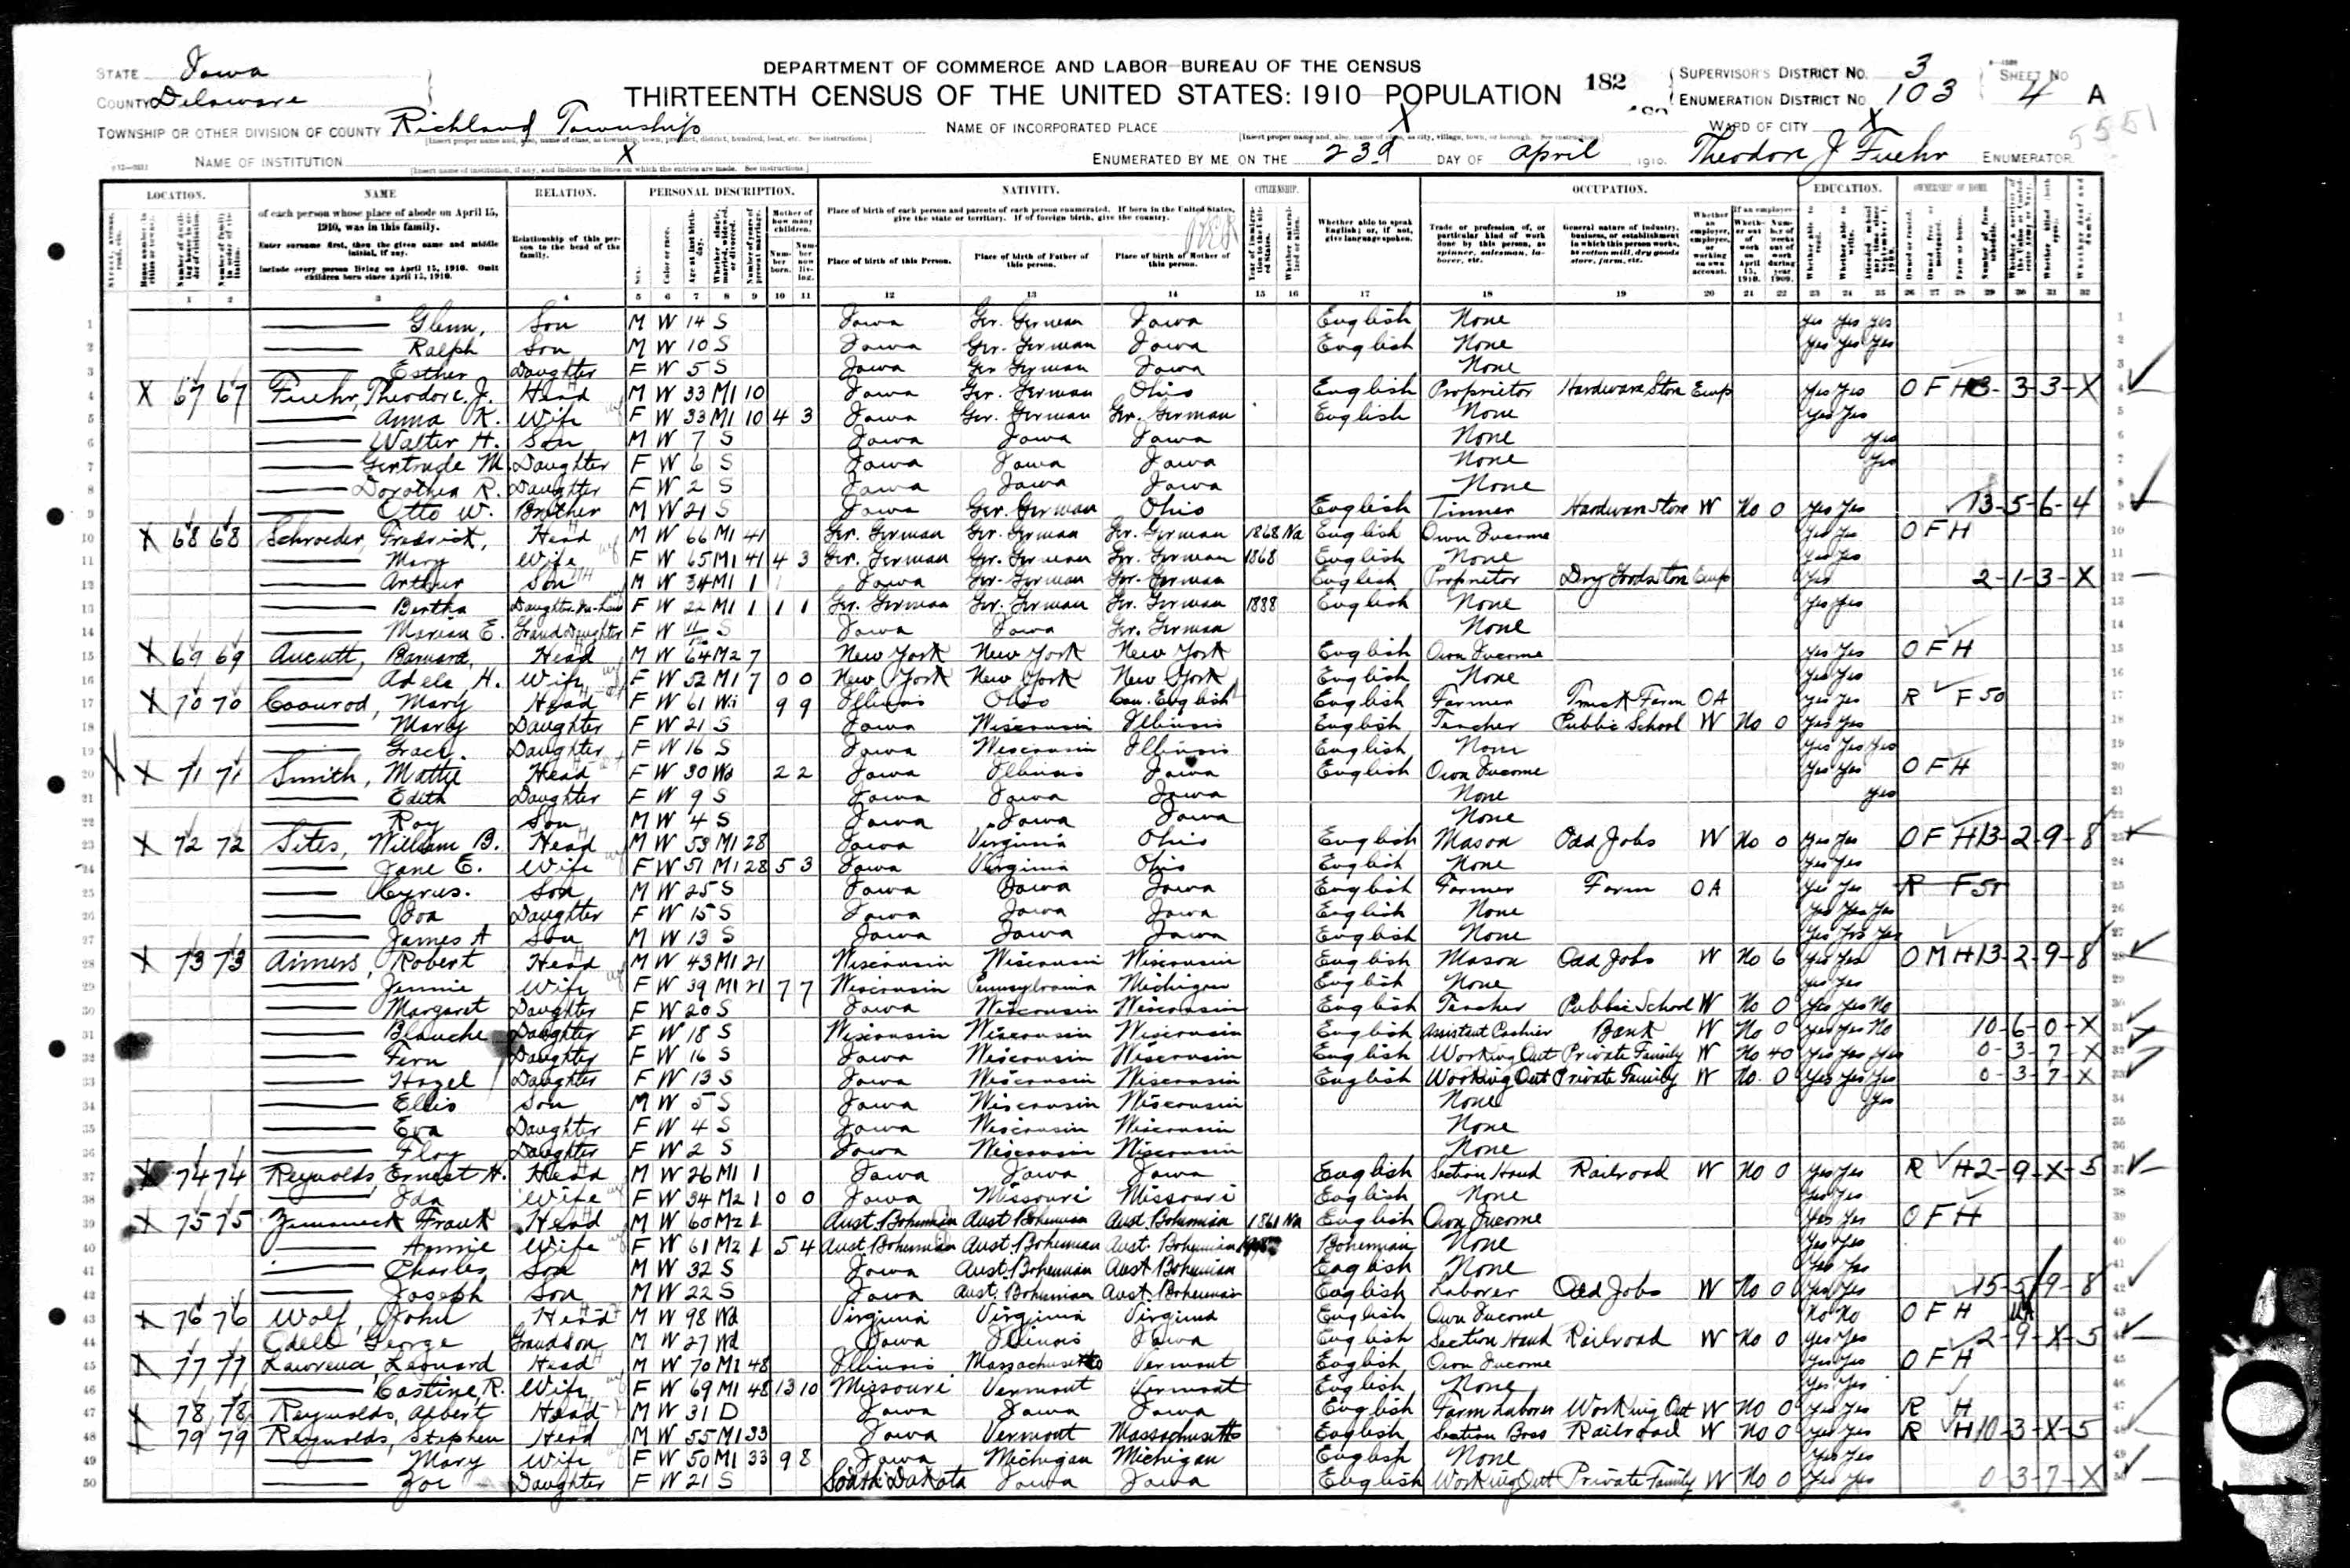 DEPARTMENT OF COMMERCE AND LABOR—BUREAU OF THE CENSUS
THIRTEENTH CENSUS OF THE UNITED STATES: 1910—POPULATION
182
STATE Iowa
COUNTY Delaware
TOWNSHIP OR OTHER DIVISION OF COUNTY Richland Township
NAME OF INSTITUTION X
NAME OF INCORPORATED PLACE X
SUPERVISOR'S DISTRICT NO. 3
ENUMERATION DISTRICT NO. 103
SHEET NO. 4 A
WARD OF CITY X
5551
ENUMERATED BY ME ON THE 23d DAY OF April, 1910. Theodore J Fuehr ENUMERATOR.
LOCATION. NAME RELATION. PERSONAL DESCRIPTION. NATIVITY. CITIZENSHIP. OCCUPATION. EDUCATION. OWNERSHIP OF HOME.
of each person whose place of abode on April 15, 1910, was in this family.
Enter surname first, then the given name and middle initial, if any.
Include every person living on April 15, 1910. Omit children born since April 15, 1910.
Relationship of this person to the head of the family.
Place of birth of each person and parents of each person enumerated. If born in the United States, give the state or territory. If of foreign birth, give the country.
Place of birth of this Person. Place of birth of Father of this person. Place of birth of Mother of this person.
Whether able to speak English; or, if not, give language spoken.
1 2 3 4 5 6 7 8 9 10 11 12 13 14 15 16 17 18 19 20 21 22 23 24 25 26 27 28 29 30 31 32
1 Glenn, Son M W 14 S Iowa Ger. German Iowa English None Yes Yes Yes
2 Ralph Son M W 10 S Iowa Ger. German Iowa English None Yes Yes Yes
3 Esther Daughter F W 5 S Iowa Ger German Iowa None
4 X 67 67 Fuehr, Theodore. J. Head M W 33 M1 10 Iowa Ger. German Ohio English Proprietor Hardware Store Emp Yes Yes O F H 3-3-X
5 Anna K. Wife F W 33 M1 10 4 3 Iowa Ger. German Ger. German English None Yes Yes
6 Walter H. Son M W 7 S Iowa Iowa Iowa None Yes
7 Gertrude M. Daughter F W 6 S Iowa Iowa Iowa None Yes
8 Dorothea R. Daughter F W 2 S Iowa Iowa Iowa None
9 Otto W. Brother M W 21 S Iowa Ger. German Ohio English Tinner Hardware Store W No 0 Yes Yes 13-5-6-4
10 X 68 68 Schroeder, Fredrick, Head M W 66 M1 41 Ger. German Ger. German Ger. German 1868 Na English Own Income Yes Yes O F H
11 Mary Wife F W 65 M1 41 4 3 Ger. German Ger. German Ger. German 1868 English None Yes Yes
12 Arthur Son M W 34 M1 1 Iowa Ger. German Ger. German English Proprietor Dry Goods Store Emp Yes 2-1-3-X
13 Bertha Daughter-in-law F W 22 M1 1 1 1 Ger. German Ger. German Ger. German 1888 English None Yes Yes
14 Marian E. Grand Daughter F W 11/12 S Iowa Iowa Ger. German None
15 X 69 69 Aucutt, Barnard, Head M W 64 M2 7 New York New York New York English Own Income Yes Yes O F H
16 Adela, H. Wife F W 52 M1 7 0 0 New York New York New York English None Yes Yes
17 X 70 70 Coonrod, Mary Head F W 61 Wi 9 9 Illinois Ohio Can. English English Farmer Truck Farm OA Yes Yes R F 50
18 Mary Daughter F W 21 S Iowa Wisconsin Illinois English Teacher Public School W No 0 Yes Yes
19 Grace. Daughter F W 16 S Iowa Wisconsin Illinois English None Yes Yes Yes
20 X 71 71 Smith, Mattie Head F W 30 Wd 2 2 Iowa Illinois Iowa English Own Income Yes Yes O F H
21 Edith Daughter F W 9 S Iowa Iowa Iowa None Yes
22 Roy Son M W 4 S Iowa Iowa Iowa None
23 X 72 72 Sites, William B. Head M W 53 M1 28 Iowa Virginia Ohio English Mason Odd Jobs W No 0 Yes Yes O F H 13-2-9-8
24 Jane E. Wife F W 51 M1 28 5 3 Iowa Virginia Ohio English None Yes Yes
25 Cyrus. Son M W 25 S Iowa Iowa Iowa English Farmer Farm OA Yes Yes R F 51
26 Daughter F W 15 S Iowa Iowa Iowa English None Yes Yes Yes
27 James A Son M W 13 S Iowa Iowa Iowa English None Yes Yes Yes
28 X 73 73 Aimers, Robert Head M W 43 M1 21 Wisconsin Wisconsin Wisconsin English Mason Odd Jobs W No 6 Yes Yes O M H 13-2-9-8
29 Jennie Wife F W 39 M1 21 7 7 Wisconsin Pennsylvania Michigan English None Yes Yes
30 Margaret Daughter F W 20 S Iowa Wisconsin Wisconsin English Teacher Public School W No 0 Yes Yes No
31 Blanche Daughter F W 18 S Wisconsin Wisconsin Wisconsin English Assistant Cashier Bank W No 0 Yes Yes No 10-6-0-X
32 Fern Daughter F W 16 S Iowa Wisconsin Wisconsin English Working Out Private Family W No 40 Yes Yes Yes 0-3-7-X
33 Hazel Daughter F W 13 S Iowa Wisconsin Wisconsin English Working Out Private Family W No. 0 Yes Yes Yes 0-3-7-X
34 Ellis Son M W 5 S Iowa Wisconsin Wisconsin None Yes
35 Eva Daughter F W 4 S Iowa Wisconsin Wisconsin None
36 Floy Daughter F W 2 S Iowa Wisconsin Wisconsin None
37 X 74 74 Reynolds, Ernest H. Head M W 26 M1 1 Iowa Iowa Iowa English Section Hand Railroad W No 0 Yes Yes R H 2-9-X-5
38 Ida Wife F W 34 M2 1 0 0 Iowa Missouri Missouri English None Yes Yes
39 X 75 75 Zamaneck Frank Head M W 60 M2 1 Aust. Bohemian Aust Bohemian Aust Bohemian 1861 Na English Own Income Yes Yes O F H
40 Annie Wife F W 61 M2 1 5 4 Aust Bohemian Aust. Bohemian Aust. Bohemian Bohemian None Yes Yes
41 Charles Son M W 32 S Iowa Aust. Bohemian Aust Bohemian English None Yes Yes
42 Joseph Son M W 22 S Iowa Aust. Bohemian Aust Bohemian English Laborer Odd Jobs W No 0 Yes Yes 15-5-9-8
43 X 76 76 Wolf, John Head M W 98 Wd Virginia Virginia Virginia English Own Income No No O F H UA
44 Odell George Grandson M W 27 Wd Iowa Illinois Iowa English Section Hand Railroad W No 0 Yes Yes 2-9-X-5
45 X 77 77 Lawrence, Leonard Head M W 70 M1 48 Illinois Massachusetts Vermont English Own Income Yes Yes O F H
46 Castine, R. Wife F W 69 M1 48 13 10 Missouri Vermont Vermont English None Yes Yes
47 X 78 78 Reynolds, Albert Head M W 31 D Iowa Iowa Iowa English Farm Laborer Working Out W No 0 Yes Yes R H
48 X 79 79 Reynolds, Stephen Head M W 55 M1 33 Iowa Vermont Massachusetts English Section Boss Railroad W No 0 Yes Yes R H 10-3-X-5
49 Mary Wife F W 50 M1 33 9 8 Iowa Michigan Michigan English None Yes Yes
50 Zoe Daughter F W 21 S South Dakota Iowa Iowa English Working Out Private Family W No 0 Yes Yes 0-3-7-X